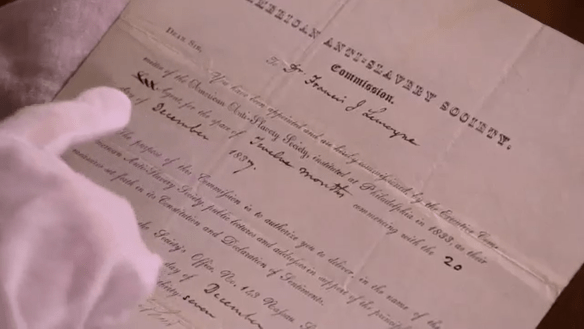 AMERICAN ANTI-SLAVERY SOCIETY.
Commission.
To Dr. Francis J Lemoyne
DEAR SIR,
You have been appointed and are hereby commissioned by the Executive Com-
mittee of the American Anti-Slavery Society, instituted at Philadelphia in 1833, as their
Agent for the space of Twelve months commencing with the 20
day of December 1837.
The purpose of this Commission is to authorize you to deliver, in the name of the
American Anti-Slavery Society public lectures and addresses in support of the principles
measures set forth in its Constitution and Declaration of Sentiments.
the Society's Office No. 143 Nassau
day of December
seven